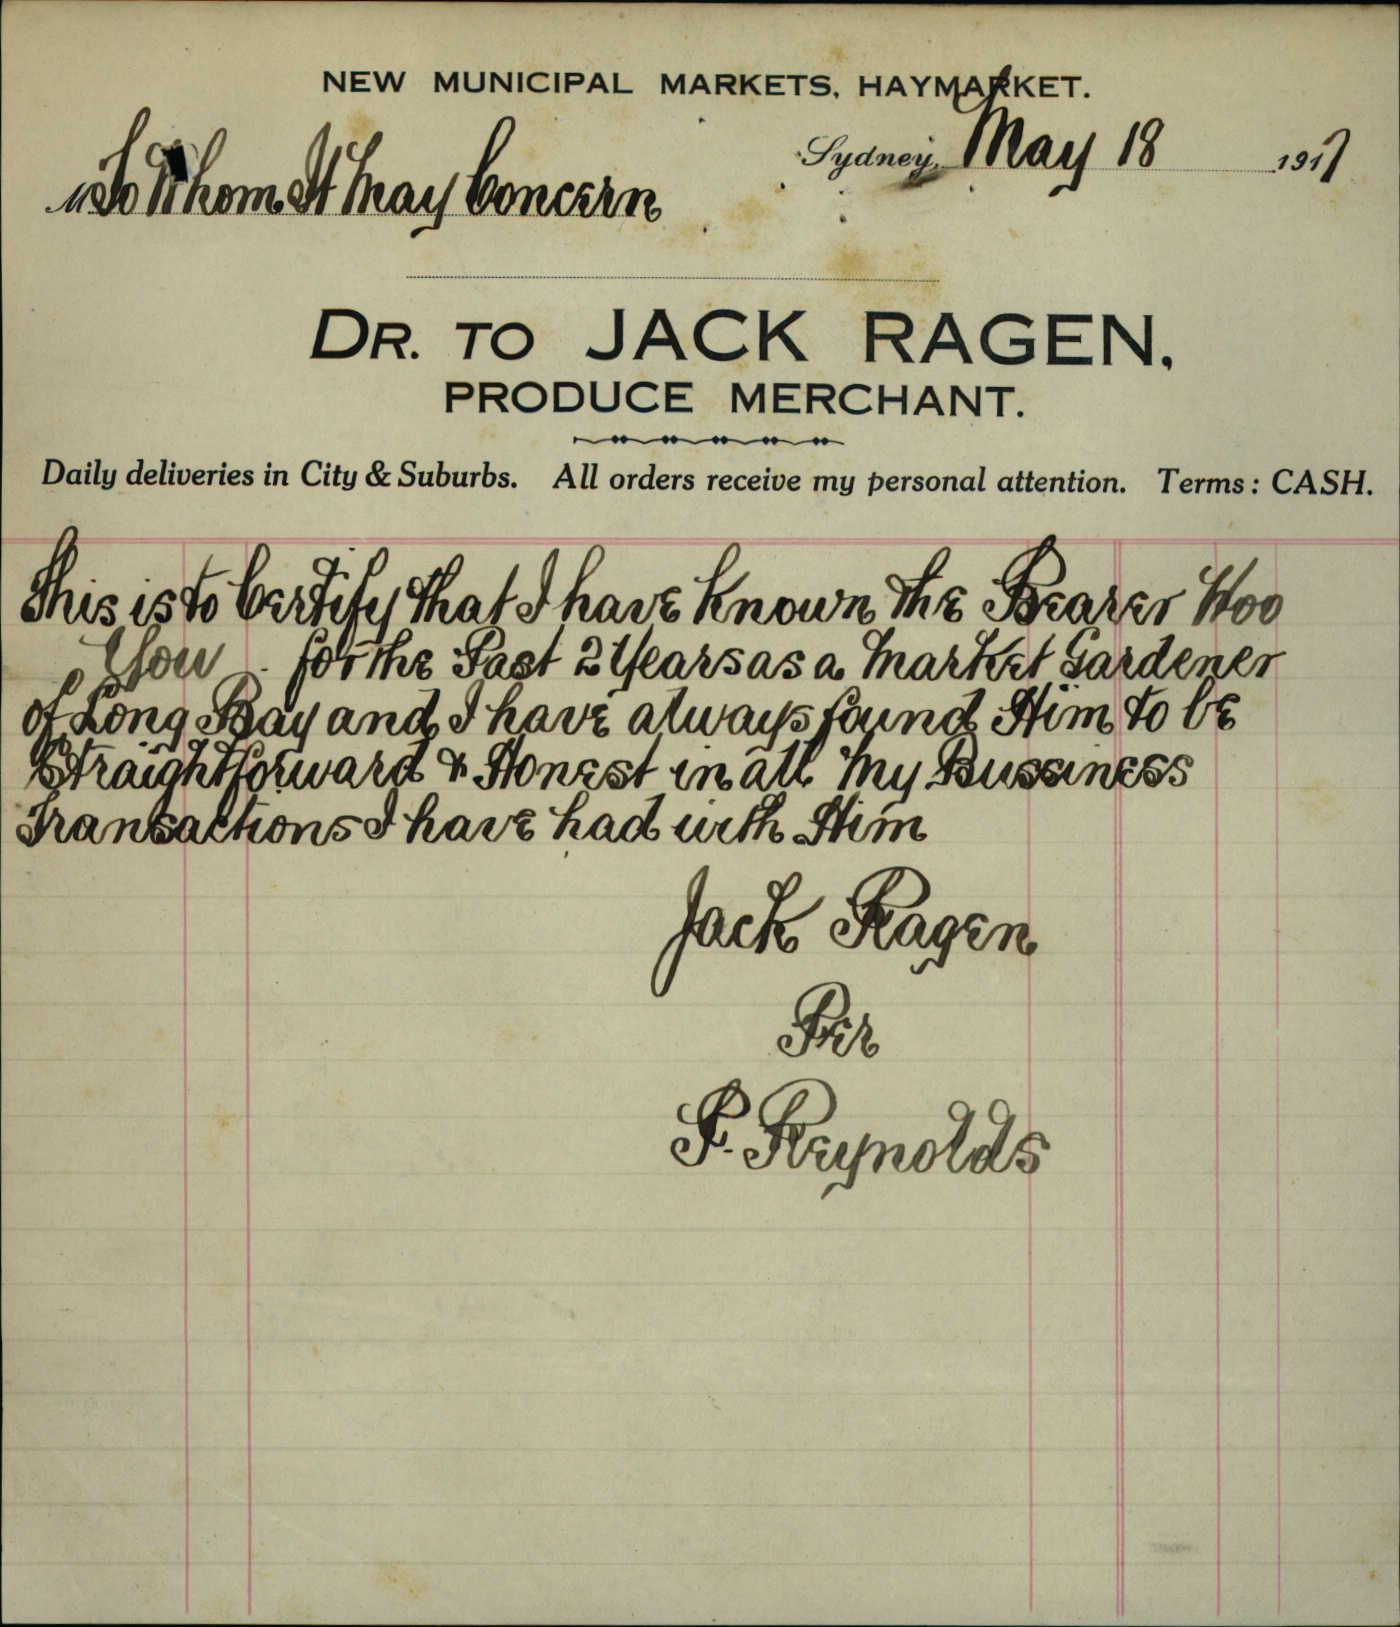 NEW MUNICIPAL MARKETS, HAYMARKET.
Sydney, May 18 1917
M To Whom It May Concern
DR. TO JACK RAGEN,
PRODUCE MERCHANT.
Daily deliveries in City & Suburbs. All orders receive my personal attention. Terms: CASH.
This is to Certify that I have Known the Bearer Hoo
You for the Past 2 Years as a Market Gardener
of Long Bay and I have always found Him to be
Straightforward & Honest in all My Bussiness
Transactions I have had with Him
Jack Ragen
Per
P. Reynolds